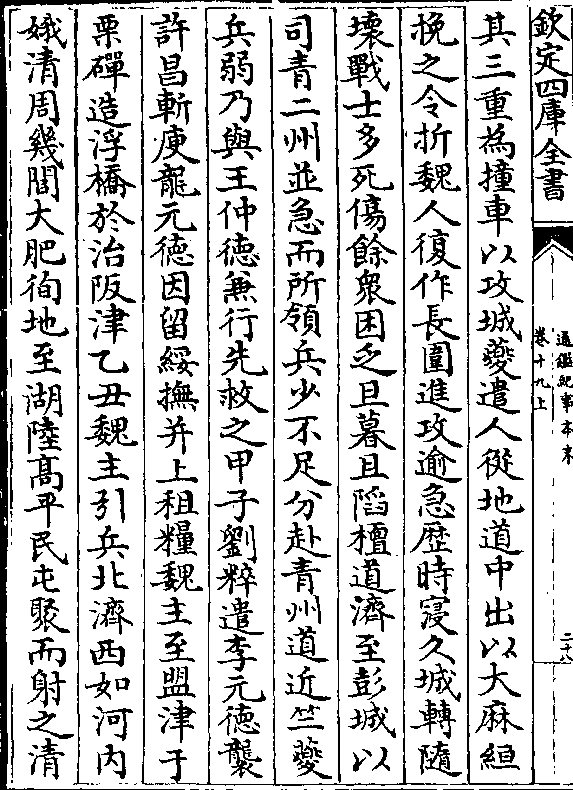 欽定四庫全書
通鑑紀事本末
卷十九上
二十八
其三重為撞車以攻城夔遣人從地道中出以大麻絙
挽之令折魏人復作長圍進攻逾急歷時寖久城轉隨
壞戰士多死傷餘衆困乏旦暮且陷檀道濟至彭城以
司青二州並急而所領兵少不足分赴青州道近竺夔
兵弱乃與王仲德兼行先救之甲子劉粹遣李元德襲
許昌斬庾龍元德因留綏撫并上租糧魏主至盟津于
栗磾造浮橋於冶阪津乙丑魏主引兵北濟西如河內
娥清周幾閭大肥徇地至湖陸高平民屯聚而射之清